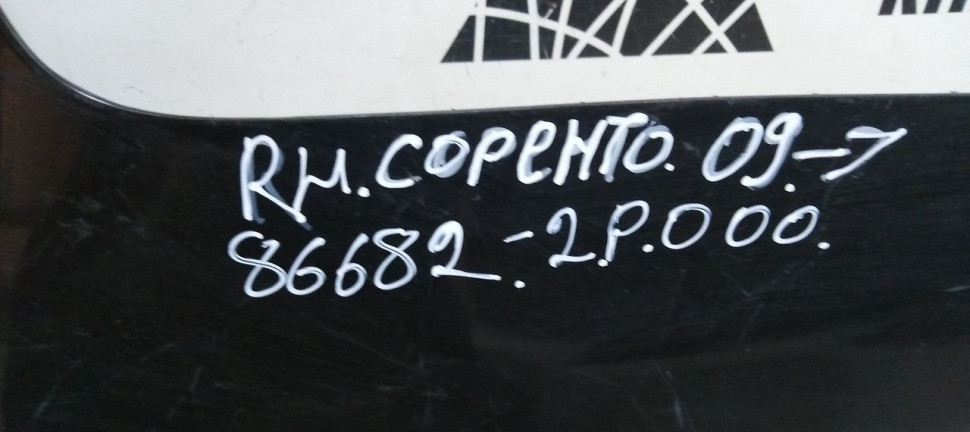 RH. СОРЕНТО. 09-7
86682.-2.P.000.